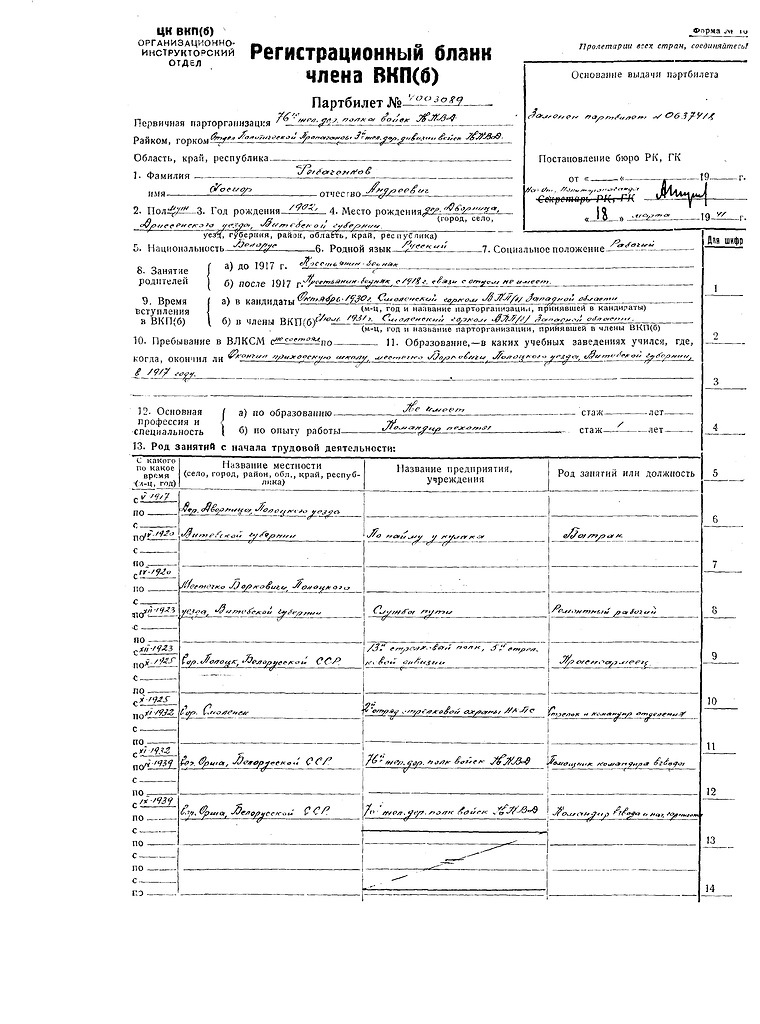 ЦК ВКП(б)
ОРГАНИЗАЦИОННО-
ИНСТРУКТОРСКИЙ
ОТДЕЛ
Регистрационный бланк
члена ВКП(б)
Партбилет №4003089
Форма № 10
Пролетарии всех стран, соединяйтесь!
Основание выдачи партбилета
Заменен партбилет № 0637418
Постановление бюро РК, ГК
от « » 19 г.
Секретарь РК, ГК
« 18 » марта 1941 г.
Первичная парторганизация 76й жел. дор. полка войск НКВД
Райком, горком Отдел Политической Пропаганды 3й жел. дор. дивизии войск НКВД
Область, край, республика
1. Фамилия
имя отчество Андреевич
2. Пол муж 3. Год рождения 1902. 4. Место рождения дер. Дворница,
(город, село,
Дриссенского уезда, Витебской губернии
уезд, губерния, район, область, край, республика)
5. Национальность Беларус 6. Родной язык Русский 7. Социальное положение Рабочий
8. Занятие родителей
а) до 1917 г. Крестьянин-бедняк
б) после 1917 г. Крестьянин-бедняк, с 1918 г. связи с отцом не имеет.
9. Время вступления в ВКП(б)
а) в кандидаты Октябрь 1930 г. Смоленский горком ВКП(б) Западной области
(м-ц, год и название парторганизации, принявшей в кандидаты)
б) в члены ВКП(б) 1931 г. Смоленский горком ВКП(б) Западной области.
(м-ц, год и название парторганизации, принявшей в члены ВКП(б)
10. Пребывание в ВЛКСМ с не состоял по 11. Образование,—в каких учебных заведениях учился, где,
когда, окончил ли Окончил приходскую школу, местечко Борковичи, Полоцкого уезда, Витебской губернии,
в 1917 году.
12. Основная профессия и специальность
а) по образованию Не имеет стаж лет
б) по опыту работы Командир пехоты стаж 1 лет
13. Род занятий с начала трудовой деятельности:
С какого по какое время (м-ц, год)
Название местности (село, город, район, обл., край, республика)
Название предприятия, учреждения
Род занятий или должность
с V-1917
по Дер. Дворница, Полоцкого уезда
с
по IV-1920 Витебской губернии По найму у кулака Батрак
с
по
с IV-1920
по Местечко Борковичи, Полоцкого
с
по XII-1923 уезда, Витебской губернии Служба пути Ремонтный рабочий
с
по
с XII-1923 13й стрелковый полк, 5й стрел-
по X-1925 Гор. Полоцк, Белорусской ССР ковой дивизии Красноармеец
с
по
с X-1925
по XI-1932 Гор. Смоленск 2й отряд стрелковой охраны НКПС Стрелок и командир отделения
с
по
с XI-1932
по IX-1939 Гор. Орша, Белорусской ССР 76й жел. дор. полк войск НКВД Помощник командира взвода
с
по
с IX-1939
по Гор. Орша, Белорусской ССР 76й жел. дор. полк войск НКВД Командир взвода и нач.
с
по
с
по
с
по
Для шифр
1
2
3
4
5
6
7
8
9
10
11
12
13
14